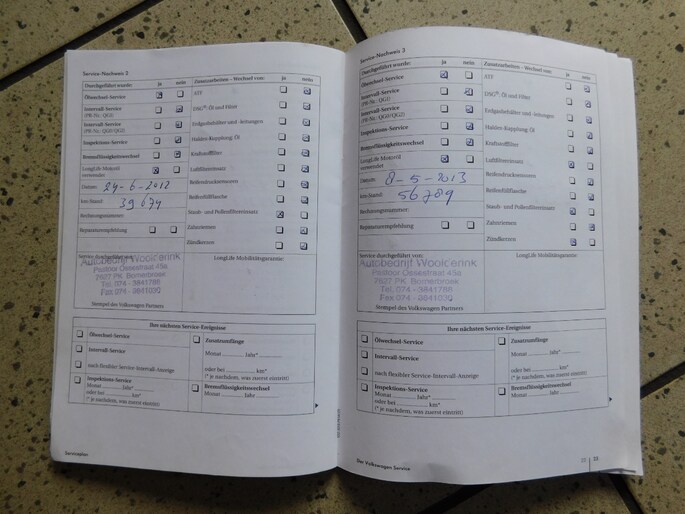 Service-Nachweis 2
Durchgeführt wurde: ja nein Zusatzarbeiten - Wechsel von: ja nein
Ölwechsel-Service ATF
Intervall-Service DSG®-Öl und Filter
(PR-Nr.: QG1)
Intervall-Service Erdgasbehälter und -leitungen
(PR-Nr.: QG0/QG2)
Inspektions-Service Haldex-Kupplung: Öl
Bremsflüssigkeitswechsel Kraftstofffilter
LongLife Motoröl Luftfiltereinsatz
verwendet
Datum: 24-6-2012 Reifendrucksensoren
km-Stand: 39674 Reifenfüllflasche
Rechnungsnummer: Staub- und Pollenfiltereinsatz
Reparaturempfehlung Zahnriemen
Zündkerzen
Service durchgeführt von: LongLife Mobilitätsgarantie:
Autobedrijf
Pastoor Ossestraat 45a
7627 PK Bornerbroek
Tel. 074 - 3841786
Fax 074 - 3841030
Stempel des Volkswagen Partners
Ihre nächsten Service-Ereignisse
Ölwechsel-Service Zusatzumfänge
Intervall-Service Monat Jahr*
nach flexibler Service-Intervall-Anzeige oder bei km*
(* je nachdem, was zuerst eintritt)
Inspektions-Service Bremsflüssigkeitswechsel
Monat Jahr* Monat Jahr
oder bei km*
(* je nachdem, was zuerst eintritt)
Serviceplan
Service-Nachweis 3
Durchgeführt wurde: ja nein Zusatzarbeiten - Wechsel von: ja nein
Ölwechsel-Service ATF
Intervall-Service DSG®-Öl und Filter
(PR-Nr.: QG1)
Intervall-Service Erdgasbehälter und -leitungen
(PR-Nr.: QG0/QG2)
Inspektions-Service Haldex-Kupplung: Öl
Bremsflüssigkeitswechsel Kraftstofffilter
LongLife Motoröl Luftfiltereinsatz
verwendet
Datum: 8-5-2013 Reifendrucksensoren
km-Stand: 56789 Reifenfüllflasche
Rechnungsnummer: Staub- und Pollenfiltereinsatz
Reparaturempfehlung Zahnriemen
Zündkerzen
Service durchgeführt von: LongLife Mobilitätsgarantie:
Autobedrijf
Pastoor Ossestraat 45a
7627 PK Bornerbroek
Tel. 074 - 3841786
Fax 074 - 3841030
Stempel des Volkswagen Partners
Ihre nächsten Service-Ereignisse
Ölwechsel-Service Zusatzumfänge
Intervall-Service Monat Jahr*
nach flexibler Service-Intervall-Anzeige oder bei km*
(* je nachdem, was zuerst eintritt)
Inspektions-Service Bremsflüssigkeitswechsel
Monat Jahr* Monat Jahr
oder bei km*
(* je nachdem, was zuerst eintritt)
Der Volkswagen Service